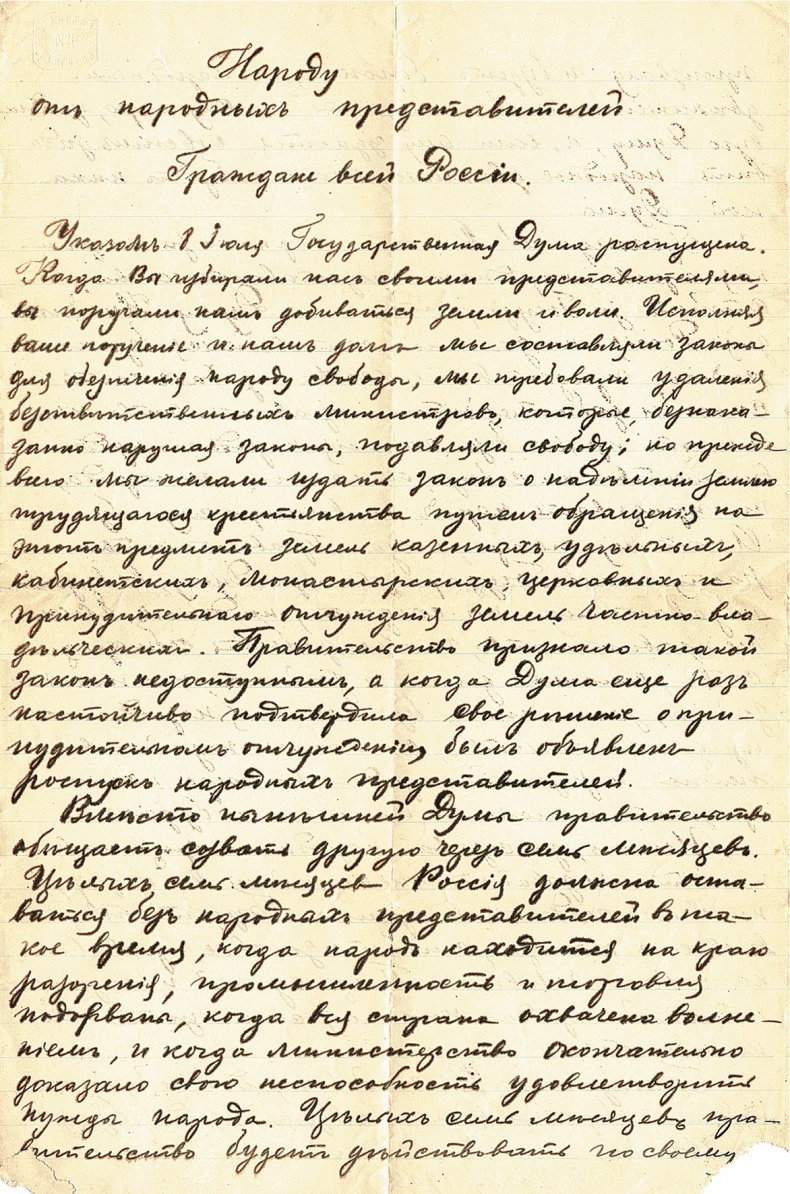 Народу
отъ народныхъ представителей
Граждане всей Россіи.
Указомъ 8 Іюля Государственная Дума распущена.
Когда Вы избирали насъ своими представителями,
вы поручали намъ добиваться земли и воли. Исполняя
ваше порученіе и нашъ долгъ мы составляли законы
для обезпеченія народу свободы, мы требовали удаленія
безотвѣтственныхъ министровъ, которые, безнака-
занно нарушая законы, подавляли свободу; но прежде
всего мы желали издать законъ о надѣленіи землею
трудящагося крестьянства путемъ обращенія на
этотъ предметъ земель казенныхъ, удѣльныхъ,
кабинетскихъ, монастырскихъ, церковныхъ и
принудительнаго отчужденія земель частно-вла-
дѣльческихъ. Правительство признало такой
законъ недоступнымъ, а когда Дума еще разъ
настойчиво подтвердила свое рѣшеніе о при-
нудительномъ отчужденіи, былъ объявленъ
роспускъ народныхъ представителей.
Вмѣсто нынѣшней Думы правительство
обѣщаетъ созвать другую черезъ семь мѣсяцевъ.
Цѣлыхъ семь мѣсяцевъ Россія должна оста-
ваться безъ народныхъ представителей въ та-
кое время, когда народъ находится на краю
разоренія, промышленность и торговля
подорваны, когда вся страна охвачена волне-
ніемъ, и когда министерство окончательно
доказало свою неспособность удовлетворить
нужды народа. Цѣлыхъ семь мѣсяцевъ пра-
вительство будетъ дѣйствовать по своему